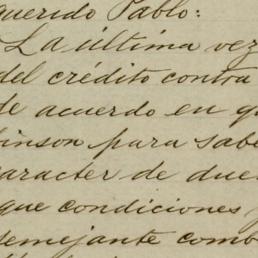 querido Pablo:
La última vez
del crédito contra
de acuerdo en q
inson para sabe
aracter de due
que condiciones y
semejante comb